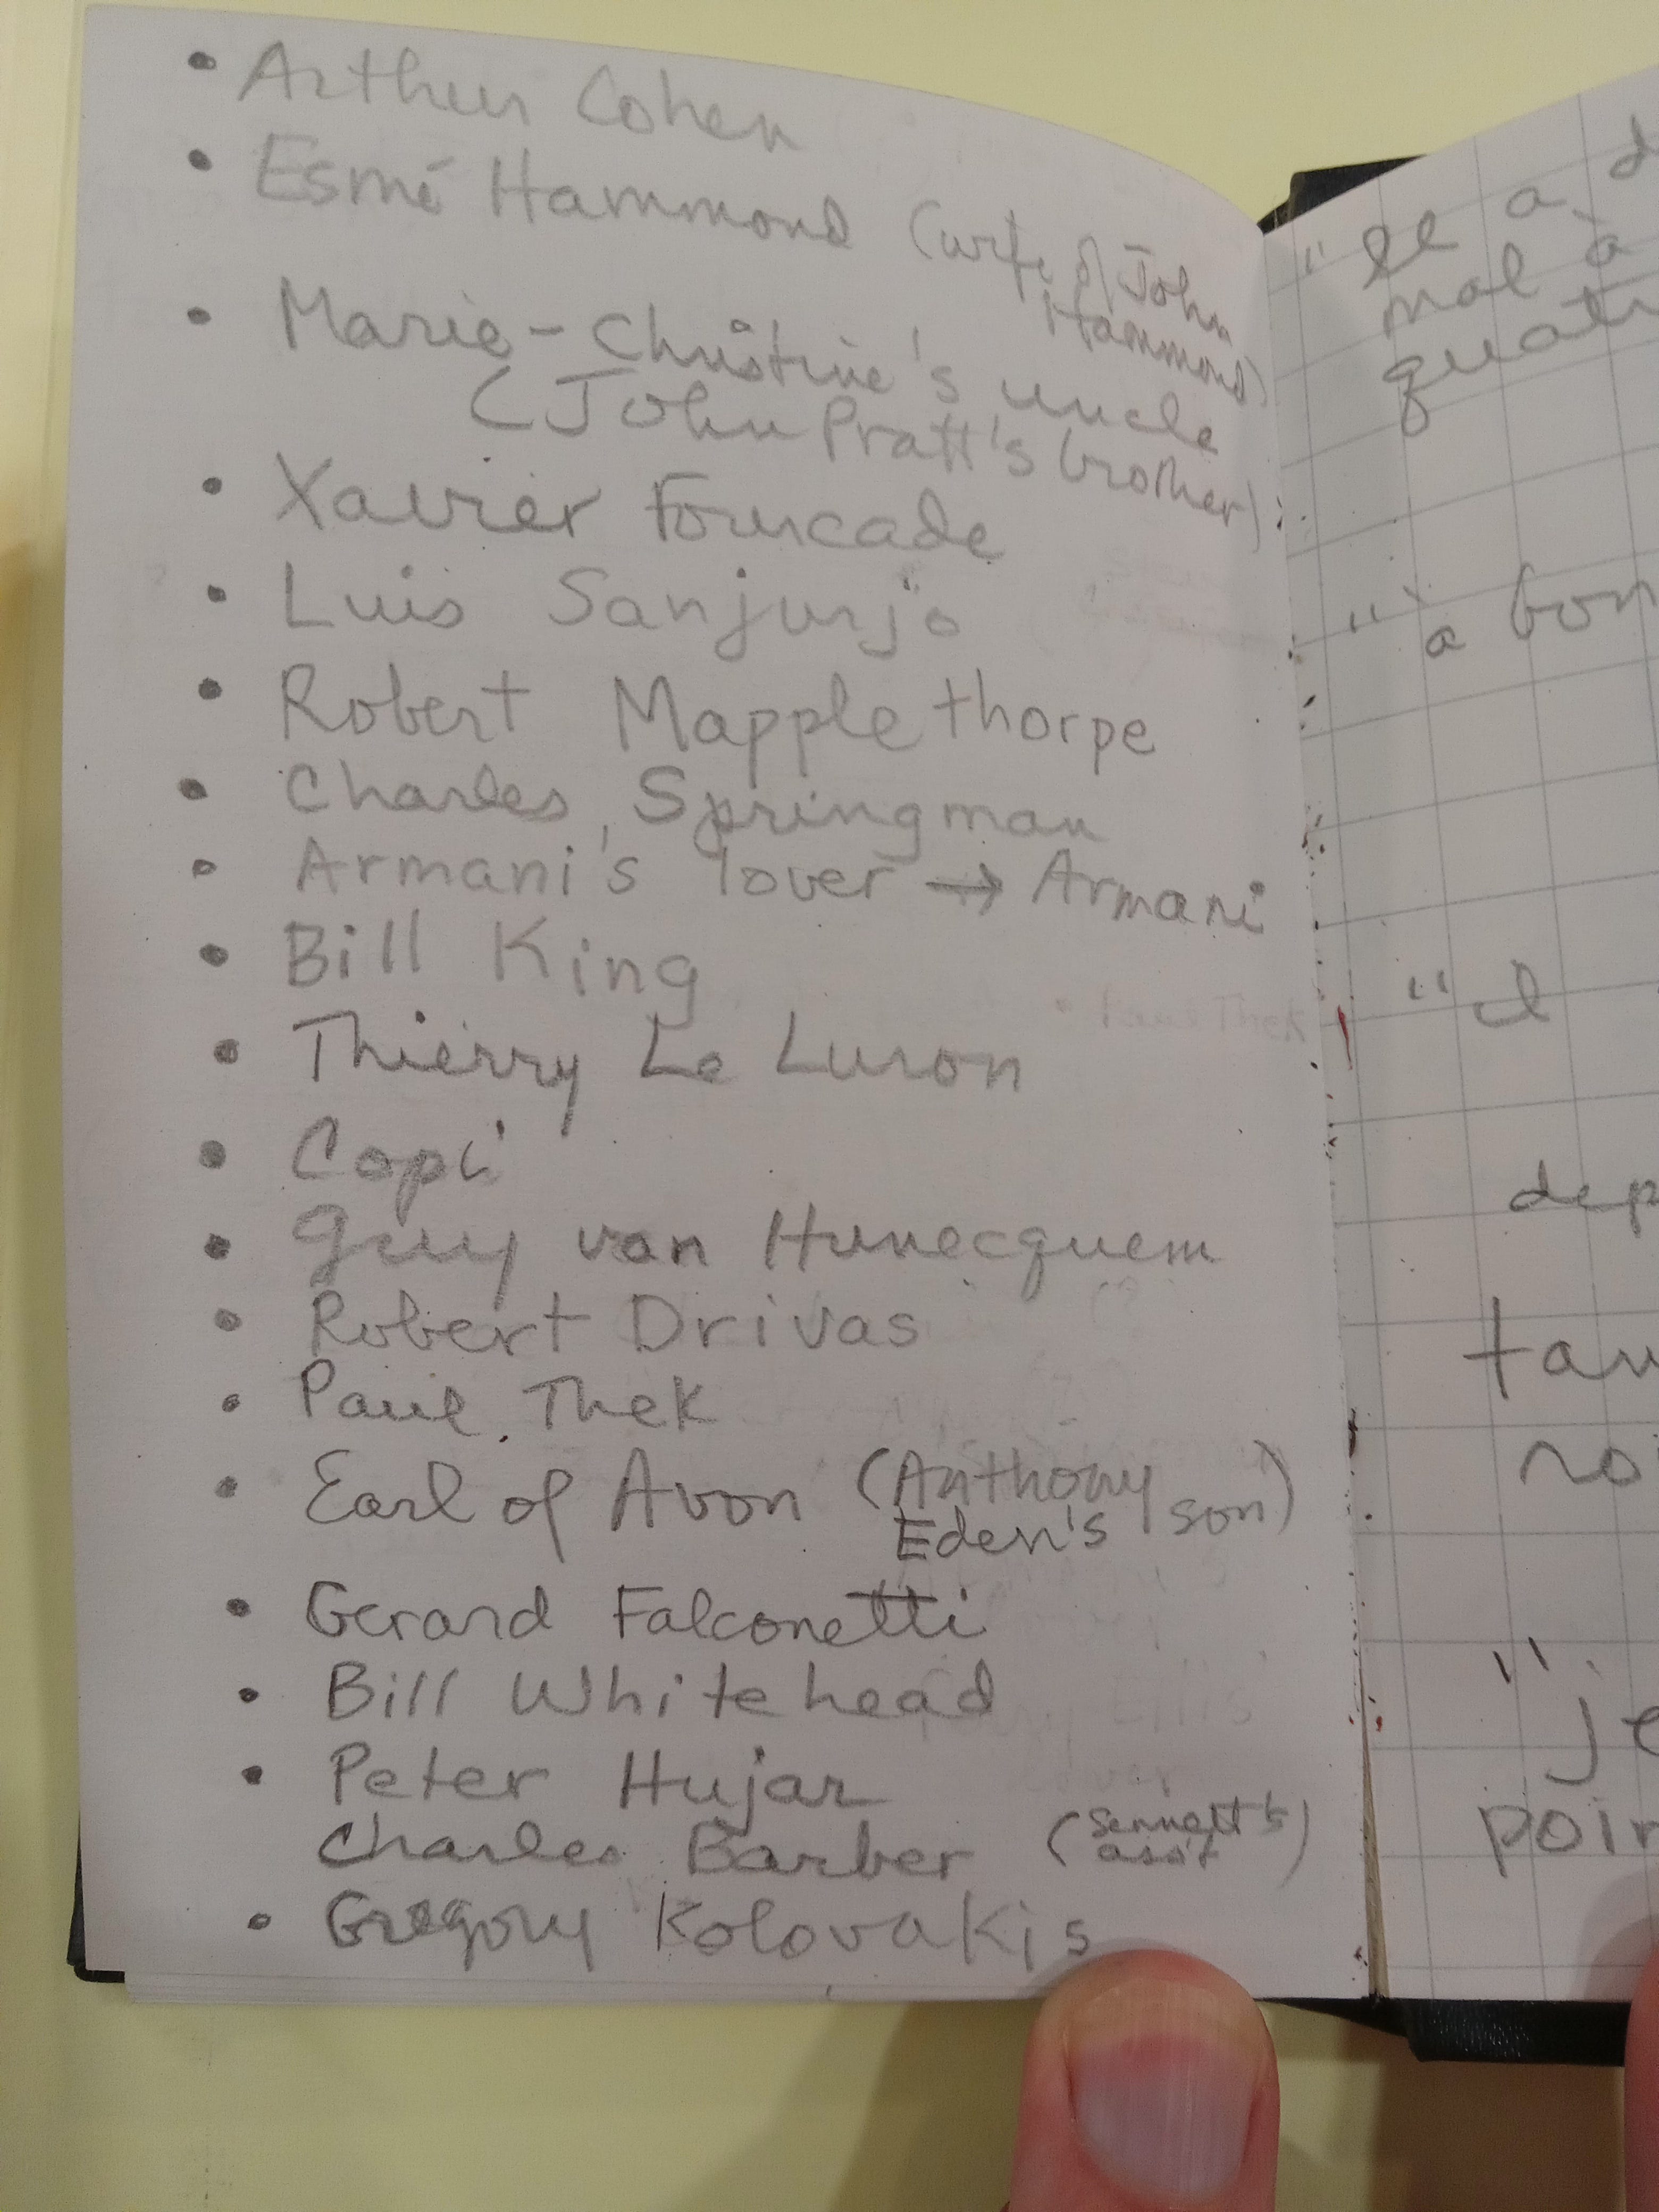 • Arthur Cohen
• Esmé Hammond (wife of John
Hammond)
• Marie-Christine's uncle
(John Pratt's brother)
• Xavier Fourcade
• Luis Sanjurjo
• Robert Mapplethorpe
• Charles Springman
• Armani's lover → Armani
• Bill King
• Thierry Le Luron
• Copi
• Guy van Hunecquem
• Robert Drivas
• Paul Thek
• Earl of Avon (Anthony
Eden's son)
• Gerard Falconetti
• Bill Whitehead
• Peter Hujar
Charles Barber (Sennett's
ass't)
• Gregory Kolovakis
a d
mal à
quatr
"à bon
"il
dep
"je
poin